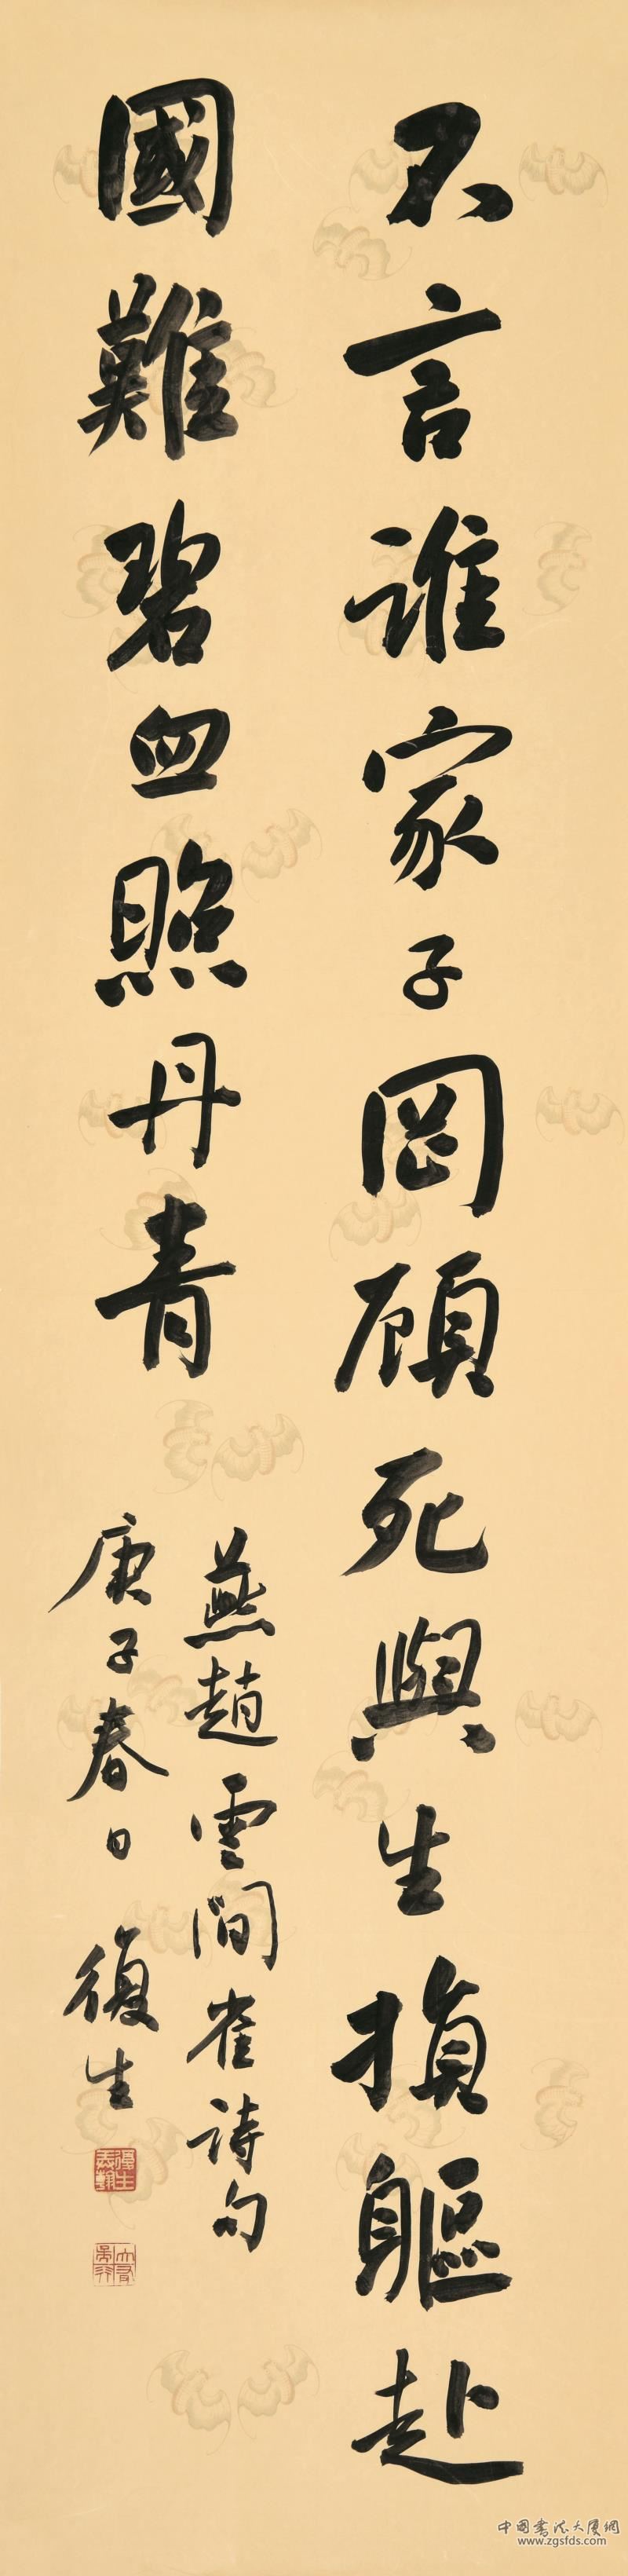 不言誰家子岡顧死與生損軀赴
國難碧血照丹青
燕趙雲間雀詩句
庚子春日 復生
中國書法大廈網
www.zgsfds.com